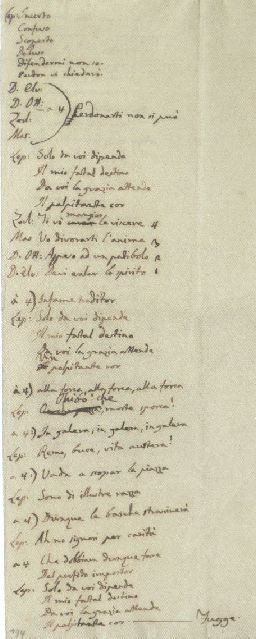 Lep: Incerto
Confuso
Scoperto
Deluso
Difendermi non so.
Perdon vi chiederò
D. Elv:
D. Ott: a 4 Perdonarti non si può
Zerl:
Mas:
Lep: Solo da voi dipende
Il mio fattal destino
Da voi la grazia attende
Il palpitante cor
Zerl: Ti vò mangiar le viscere 4
Mas: Vo divorarti l'anema 3
D: Ott: Appeso ad un patibolo 2
D: Elv: Hai esalar lo spirito 1
à 4) Infame traditor
Lep: Solo da voi dipende
Il mio fattal destino
Da voi la grazia attende
Il palpitante cor
à 4) alla forca, alla forca, alla forca
Ohibò! che
Lep: morte sporca!
a 4) In galera, in galera, in galera
Lep: Remo, buce, vita austera!
a 4) Vada a scopar la piazza
Lep: Sono di illustre razza
a 4) Dunque la
Lep: Ah no signori per carità
a 4 Che dobbiam dunque fare
Del perfido impostor
Lep: Solo da voi dipende
Il mio fattal destino
Da voi la grazia attende
Il palpitante cor